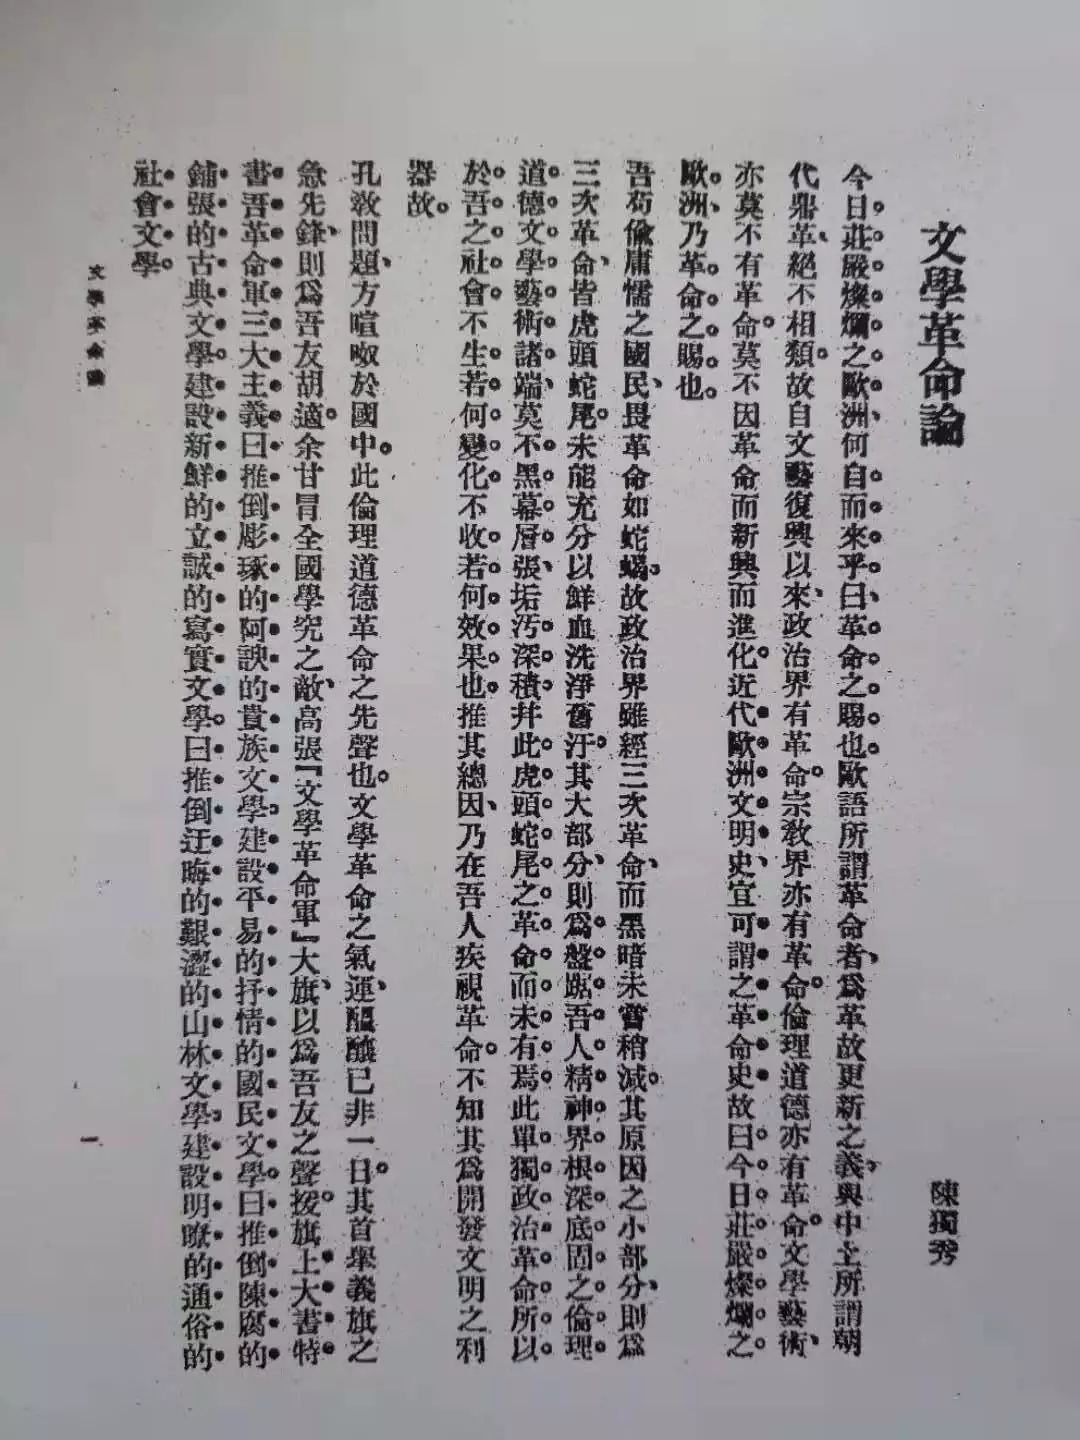 文學革命論
陳獨秀
今日莊嚴燦爛之歐洲、何自而來乎。曰、革命之賜也。歐語所謂革命者、爲革故更新之義、與中土所謂朝
代鼎革、絕不相類。故自文藝復興以來、政治界有革命。宗敎界亦有革命。倫理道德亦有革命。文學藝術、
亦莫不有革命。莫不因革命而新興而進化。近代歐洲文明史、宜可謂之革命史。故曰、今日莊嚴燦爛之
歐洲、乃革命之賜也。
吾苟偸庸懦之國民、畏革命如蛇蝎。故政治界雖經三次革命、而黑暗未嘗稍減。其原因之小部分、則爲
三次革命、皆虎頭蛇尾。未能充分以鮮血洗淨舊汙。其大部分、則爲盤踞吾人精神界根深底固之倫理
道德文學藝術諸端、莫不黑幕層張、垢汚深積、幷此虎頭蛇尾之革命而未有焉。此單獨政治革命所以
於吾之社會、不生若何變化、不收若何效果也。推其總因、乃在吾人疾視革命。不知其爲開發文明之利
器故。
孔敎問題、方喧呶於國中。此倫理道德革命之先聲也。文學革命之氣運、醞釀已非一日。其首擧義旗之
急先鋒、則爲吾友胡適。余甘冒全國學究之敵、高張『文學革命軍』大旗、以爲吾友之聲援。旗上大書特
書吾革命軍三大主義曰推倒彫琢的阿諛的貴族文學建設平易的抒情的國民文學曰推倒陳腐的
鋪張的古典文學建設新鮮的立誠的寫實文學曰推倒迂晦的艱澀的山林文學建設明瞭的通俗的
社會文學。
文學革命論
一